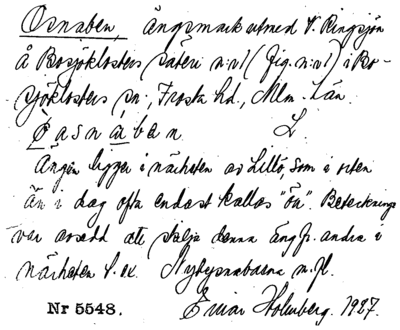 Osnaben, ängsmark utmed V. Ringsjön
å Bosjöklosters säteri n:r 1 (fig. n:o 1) i Bo-
sjöklosters sn., Frosta hd., Mlm. län.
L.
Ängen ligger i närheten av Lillö, som i orten
än i dag ofta endast kallas "ön". Beteckningen
var avsedd att skilja denna äng fr. andra i
närheten t. ex. m. fl.
Nr 5548. Einar Holmberg. 1927.